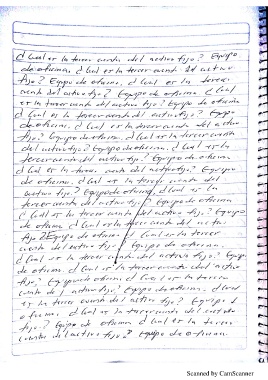 ¿Cual es la tercer cuenta del activo fijo? Equipo
de oficina. ¿Cual es la tercer cuenta del activo
fijo? Equipo de oficina. ¿Cual es la tercer
cuenta del activo fijo? Equipo de oficina. ¿Cual
es la tercer cuenta del activo fijo? Equipo de oficina
¿Cual es la tercer cuenta del activo fijo? Equipo
de oficina. ¿Cual es la tercer cuenta del activo
fijo? Equipo de oficina. ¿Cual es la tercer cuenta
del activo fijo? Equipo de oficina. ¿Cual es la
tercer cuenta del activo fijo? Equipo de oficina
¿Cual es la tercer cuenta del activo fijo? Equipo
de oficina. ¿Cual es la tercer cuenta del
activo fijo? Equipo de oficina. ¿Cual es la
tercer cuenta del activo fijo? Equipo de oficina
¿Cual es la tercer cuenta del activo fijo? Equipo
de oficina ¿Cual es la tercer cuenta del activo
fijo? Equipo de oficina. ¿Cual es la tercer
cuenta del activo fijo? Equipo de oficina.
¿Cual es la tercer cuenta del activo fijo? Equipo
de oficina. ¿Cual es la tercer cuenta del activo
fijo? Equipo de oficina ¿Cual es la tercer
cuenta del activo fijo? Equipo de oficina. ¿Cual
es la tercer cuenta del activo fijo? Equipo d
oficina. ¿Cual es la tercer cuenta del activo
fijo? Equipo de oficina ¿Cual es la tercer
cuenta del activo fijo? Equipo de oficina.
Scanned by CamScanner